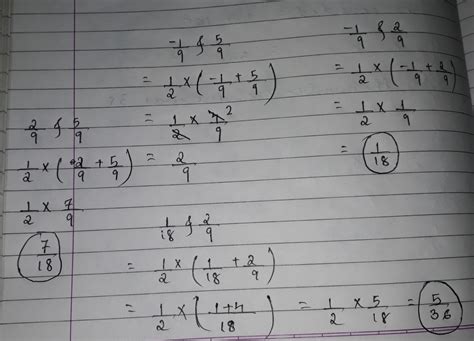 -1/9 & 5/9
= 1/2 × (-1/9 + 5/9)
= 1/2 × 4/9 2
= 2/9
-1/9 & 2/9
= 1/2 × (-1/9 + 2/9)
= 1/2 × 1/9
= 1/18
2/9 & 5/9
1/2 × (2/9 + 5/9)
1/2 × 7/9
7/18
1/18 & 2/9
= 1/2 × (1/18 + 2/9)
= 1/2 × (1+4/18) = 1/2 × 5/18 = 5/36